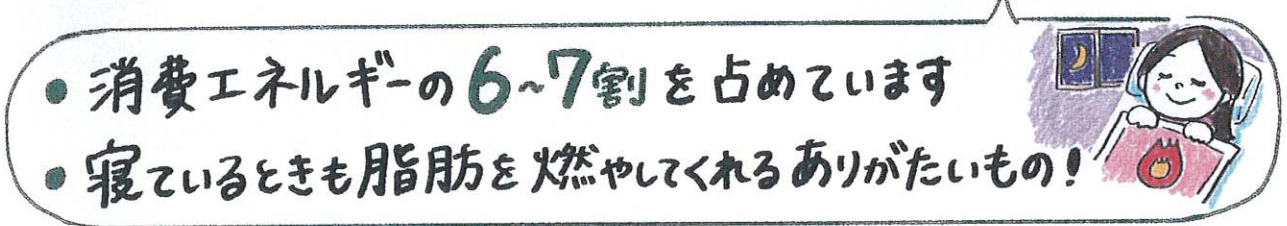 • 消費エネルギーの6~7割を占めています
• 寝ているときも脂肪を燃やしてくれるありがたいもの!